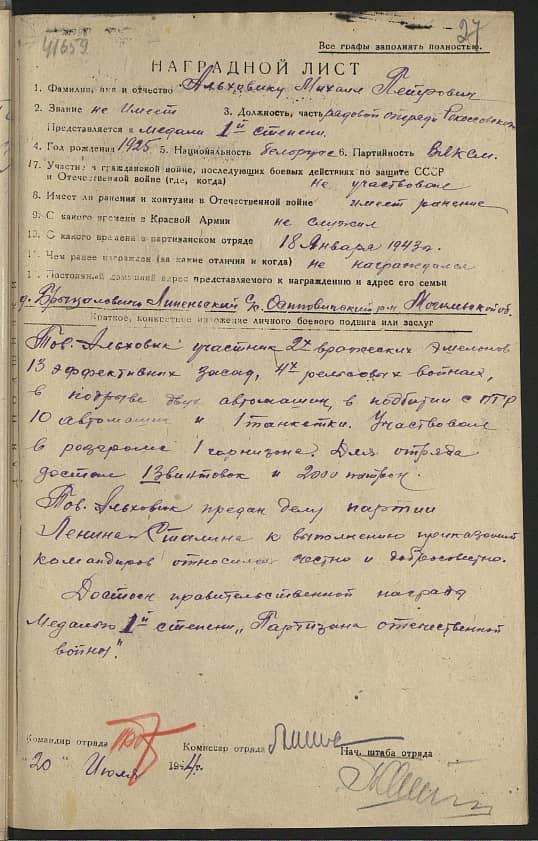 27
41659
Все графы заполнять полностью.
НАГРАДНОЙ ЛИСТ
1. Фамилия, имя и отчество Альховику Михаил Петрович
2. Звание не имеет 3. Должность, часть радовой отряда Рокоссовского
Представляется к медали 1й степени.
4. Год рождения 1925 5. Национальность белорус 6. Партийность ВЛКСМ.
7. Участие в гражданской войне, последующих боевых действиях по защите СССР
и Отечественной войне (где, когда) Не участвовал
8. Имеет ли ранения и контузии в Отечественной войне имеет ранение
9. С какого времени в Красной Армии не служил
10. С какого времени в партизанском отряде 18 Января 1943г.
11. Чем ранее награжден (за какие отличия и когда) не награждался
12. Постоянный домашний адрес представляемого к награждению и адрес его семьи
д. Липенский с/с. Осиповичский р-н Могилевской об.
Краткое, конкретное изложение личного боевого подвига или заслуг
Тов. Альховик участник 2х вражеских эшелонов
13 эффективных засад, 4х рельсовых войнах,
в подрыве двух автомашин, в подбитии с ПТР
10 автомашин и 1 танкетки. Участвовал
в разгроме 1 гарнизона. Для отряда
достал 13 винтовок и 2000 патрон.
Тов. Альховик предан делу партии
Ленина-Сталина к выполнению приказаний
командиров относился честно и добросовестно.
Достоин правительственной награды
Медалью 1й степени „Партизана отечественной
войны".
Командир отряда Комиссар отряда Нач. штаба отряда
"20" Июля 1944г.